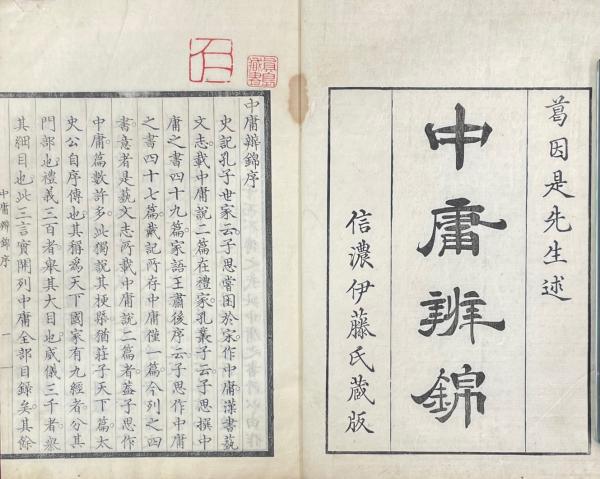 葛因是先生述
中庸辨錦
信濃伊藤氏蔵版
中庸辨錦序
史記孔子世家云子思嘗困於宋作中庸漢書藝
文志載中庸說二篇在禮家孔叢子云子思撰中
庸之書四十九篇家語王肅後序云子思作中庸
之書四十七篇戴記所存中庸僅一篇今列之四
書意者是藝文志所載中庸說二篇者蓋子思作
中庸篇數許多此獨說其梗槩猶莊子天下篇太
史公自序傳也其稱為天下國家有九經者分其
門部也禮義三百者舉其大目也威儀三千者舉
其細目也此三言實開列中庸全部目録矣其餘
中庸辨錦序
一